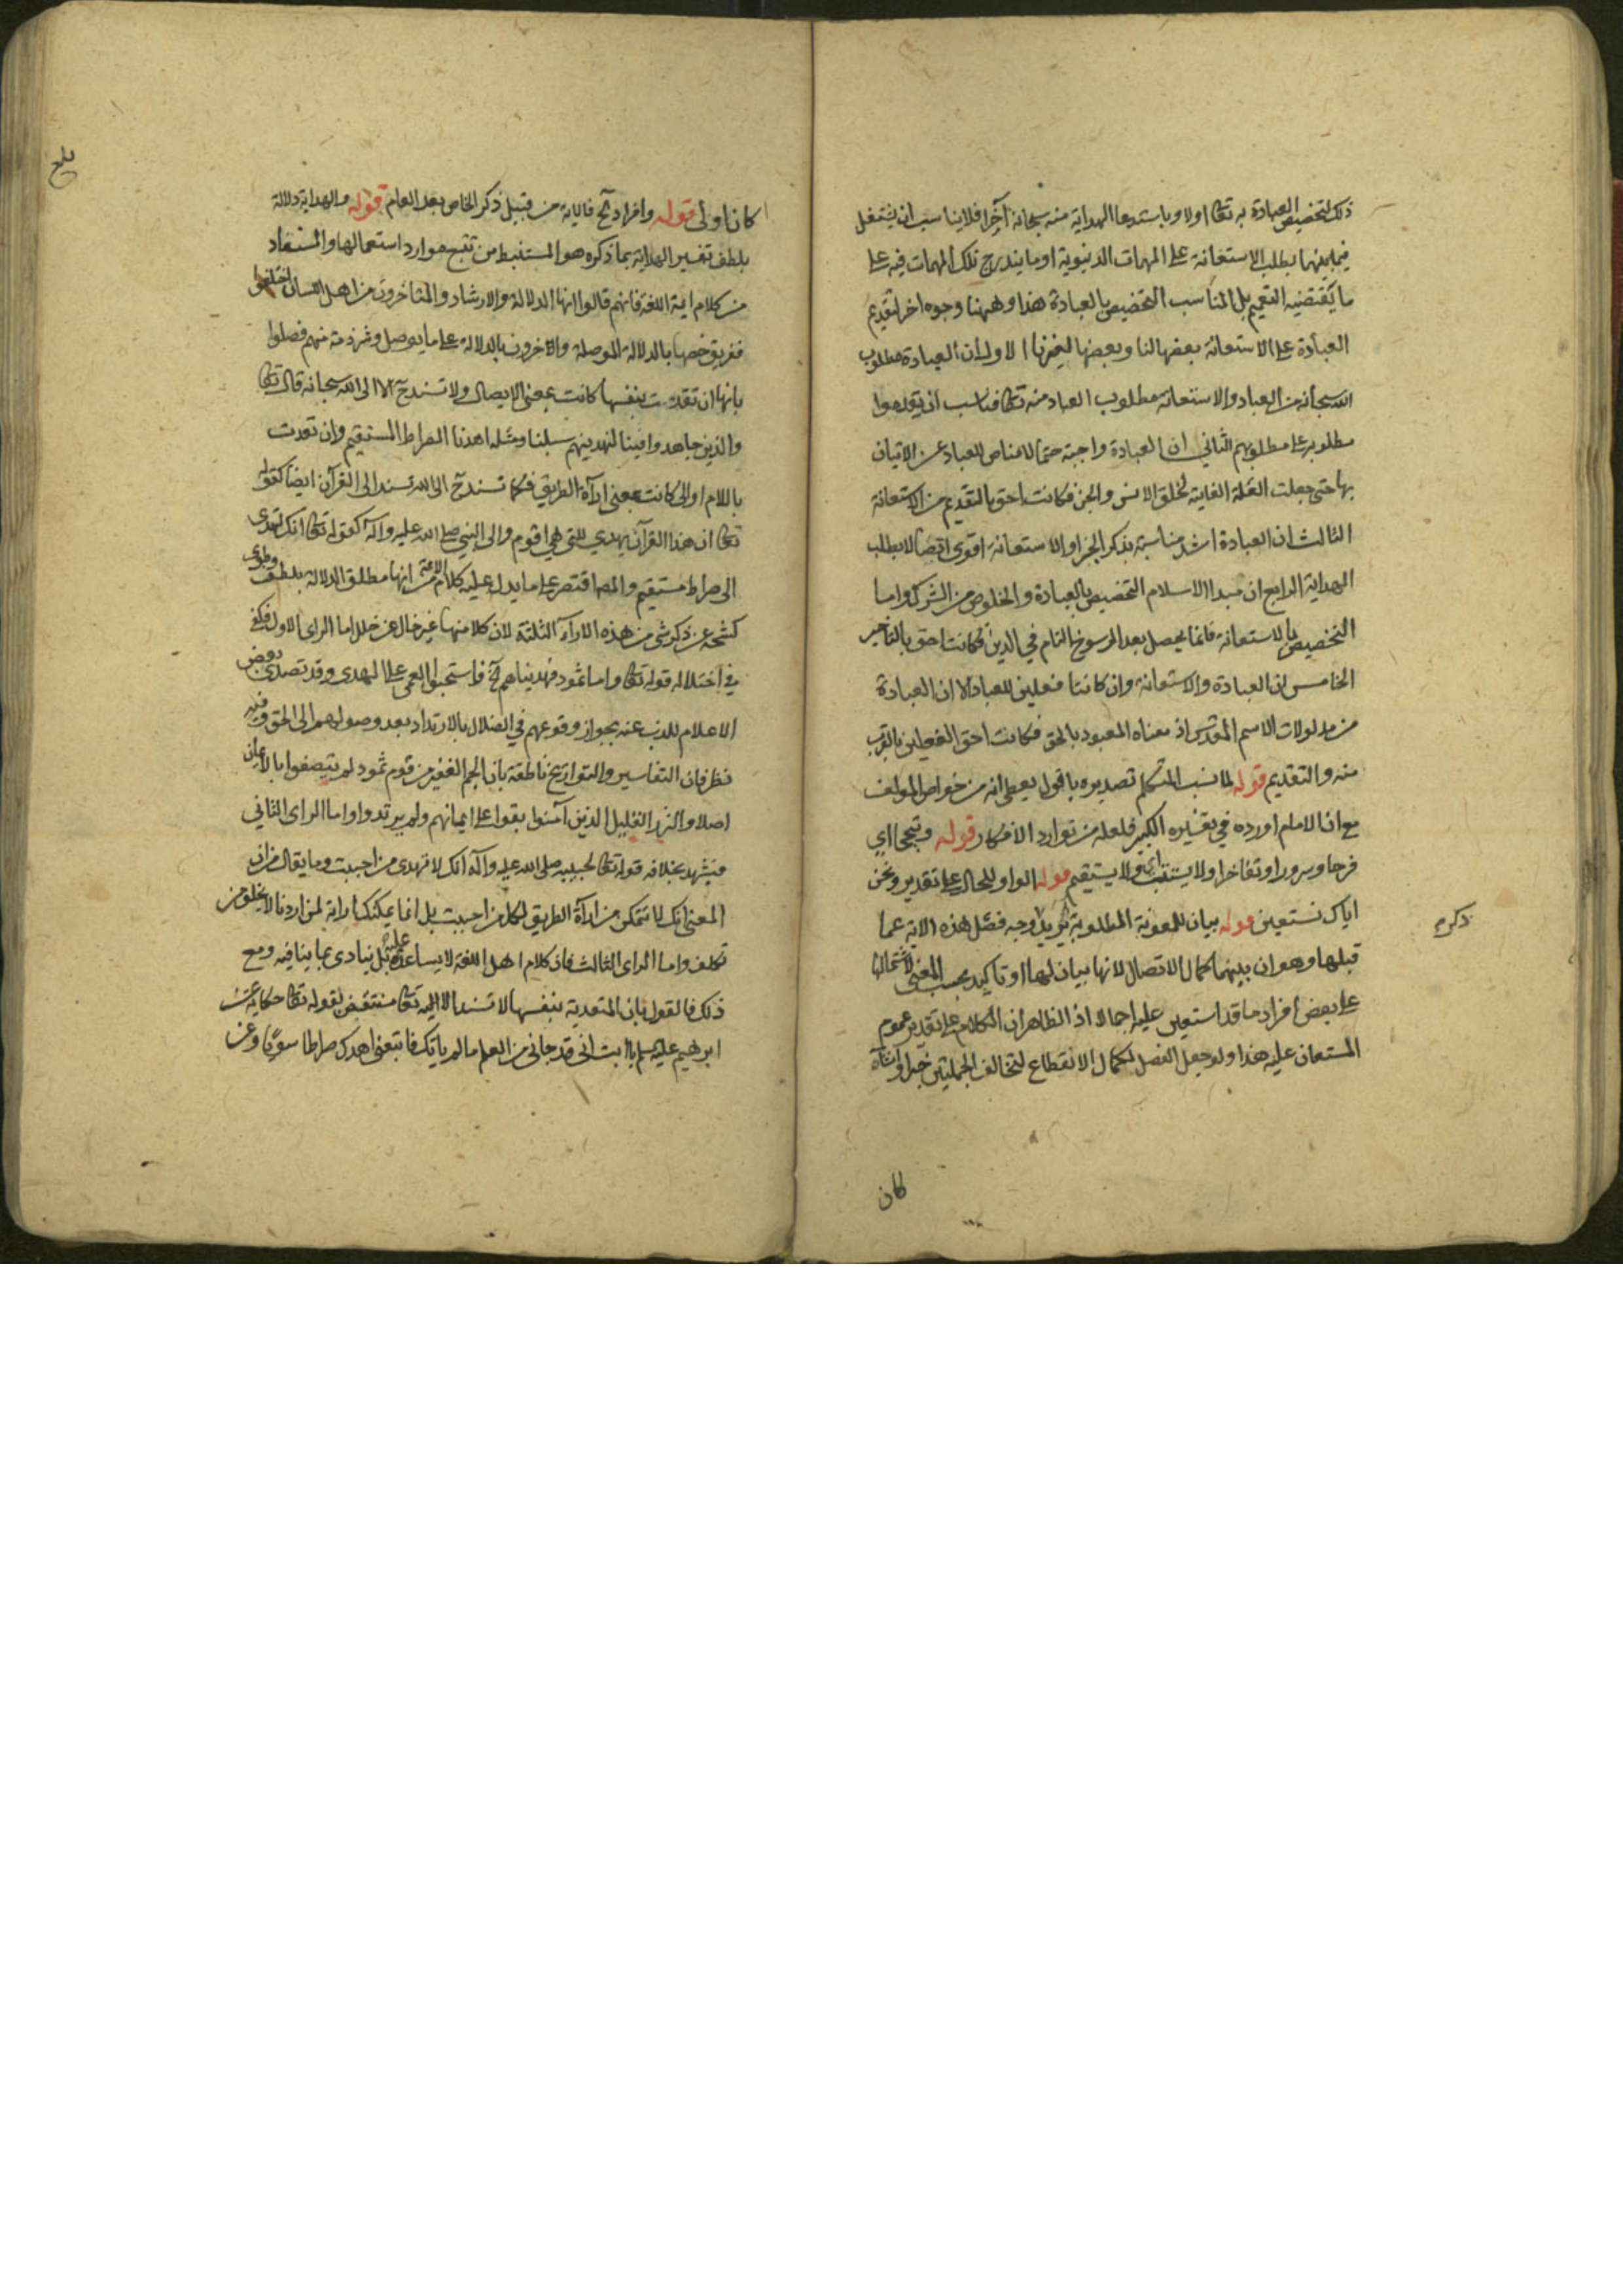 ذلك لتخصيص العبادة به تعالى اولا وباستدعا الهداية منه سبحانه آخرا فلا يناسب ان يشتغل
فيما بينهما بطلب الاستعانة على المهمات الدنيوية او ما يندرج تلك المهمات فيه على
ما يقتضيه التعميم بل المناسب التخصيص بالعبادة هذا وههنا وجوه اخر لتقديم
العبادة على الاستعانة بعضها لنا وبعضها لغيرنا الاول ان العبادة مطلوب
الله سبحانه من العباد والاستعانة مطلوب العباد منه تعالى فناسب ان يقدموا
مطلوبه على مطلوبهم الثاني ان العبادة واجبة حتما لا مناص للعباد عن الاتيان
بها حتى جعلت العلة الغايية لخلق الانس والجن فكانت احق بالتقديم من الاستعانة
الثالث ان العبادة اشد مناسبة بذكر الجزاء والاستعانة اقوى اتصالا بطلب
الهداية الرابع ان مبدا الاسلام التخصيص بالعبادة والخلوص من الشرك واما
التخصيص بالاستعانة فانما يحصل بعد الرسوخ التام في الدين فكانت احق بالتاخير
الخامس ان العبادة والاستعانة وان كانتا فعلين للعباد الا ان العبادة
من مدلولات الاسم المقدس اذ معناه المعبود بالحق فكانت احق الفعلين بالقرب
منه والتقديم قوله لما نسب المتكلم تصديره باقول يعطى انه من خواص المولف
مع ان الامام اورده في تفسيره الكبير فلعله من توارد الافكار قوله وتبجحا اي
فرحا وسرورا وتفاخرا ولا يستتب اي ولا يستقيم قوله الواو للحال على تقدير ونحن
اياك نستعين قوله بيان للمعونة المطلوبة يريد وجه فصل هذه الاية عما
ذكره
قبلها وهو ان بينهما كمال الاتصال لانها بيان لها او تاكيد بحسب المعنى لاشتمالها
على بعض افراد ما قد استعين عليه اجمالا اذ الظاهر ان الكلام على تقدير عموم
المستعان عليه هذا ولو جعل الفصل لكمال الانقطاع لتخالف الجملتين خبرا وانشاء
لكان
كان اولى قوله وافراد الخ فالاية من قبيل ذكر الخاص بعد العام قوله والهداية دلالة
بلطف تفسير الهداية بما ذكره هو المستنبط من تتبع موارد استعمالها والمستفاد
من كلام ايمة اللغة فانهم قالوا انها الدلالة والارشاد والمتاخرون من اهل اللسان اختلفوا
ففريق خصها بالدلالة الموصلة والاخرون بالدلالة على ما يوصل وشرذمة منهم فصلوا
بانها ان تعدت بنفسها كانت بمعنى الايصال ولا تسند ح الا الى الله سبحانه قال تعالى
والذين جاهدوا فينا لنهدينهم سبلنا ومثله اهدنا الصراط المستقيم وان تعدت
باللام او الى كانت بمعنى اراءة الطريق فكما تسند ح الى الله تسند الى القرآن ايضا كقوله
تعالى ان هذا القرآن يهدي للتي هي اقوم والى النبي صلى الله عليه وآله كقوله تعالى انك لتهدى
الى صراط مستقيم والمص اقتصر على ما يدل عليه كلام الايمة من انها مطلق الدلالة بلطف وطوى
كشحه عن ذكر شى من هذه الاراء الثلثة لان كلا منها غير خال عن خلل اما الراى الاول فيكفى
في اختلاله قوله تعالى واما ثمود فهديناهم الخ فاستحبوا العمى على الهدى وقد تصدى بعض
الاعلام للذب عنه بجواز وقوعهم في الضلال بالارتداد بعد وصولهم الى الحق وفيه
نظر فان التفاسير والتواريخ ناطقة بان الجم الغفير من قوم ثمود لم يتصفوا بالايمان
اصلا والنزر القليل الذين آمنوا بقوا على ايمانهم ولم يرتدوا واما الراى الثاني
فيشهد بخلافه قوله تعالى لحبيبه صلى الله عليه وآله انك لا تهدى من احببت وما يقال من ان
المعنى انك لا تتمكن من اراءة الطريق لكل من احببت بل انما يمكنك اراته لمن اردنا لا يخلو من
تكلف واما الراى الثالث فان كلام اهل اللغة لا يساعد عليه بل ينادى بما ينافيه ومع
ذلك فالقول بان المتعدية بنفسها لا تسند الا اليه تعالى منتقض لقوله تعالى حكاية عن
ابرهيم عليه السلم يا ابت انى قد جانى من العلم ما لم ياتك فاتبعنى اهدك صراطا سويا وعن